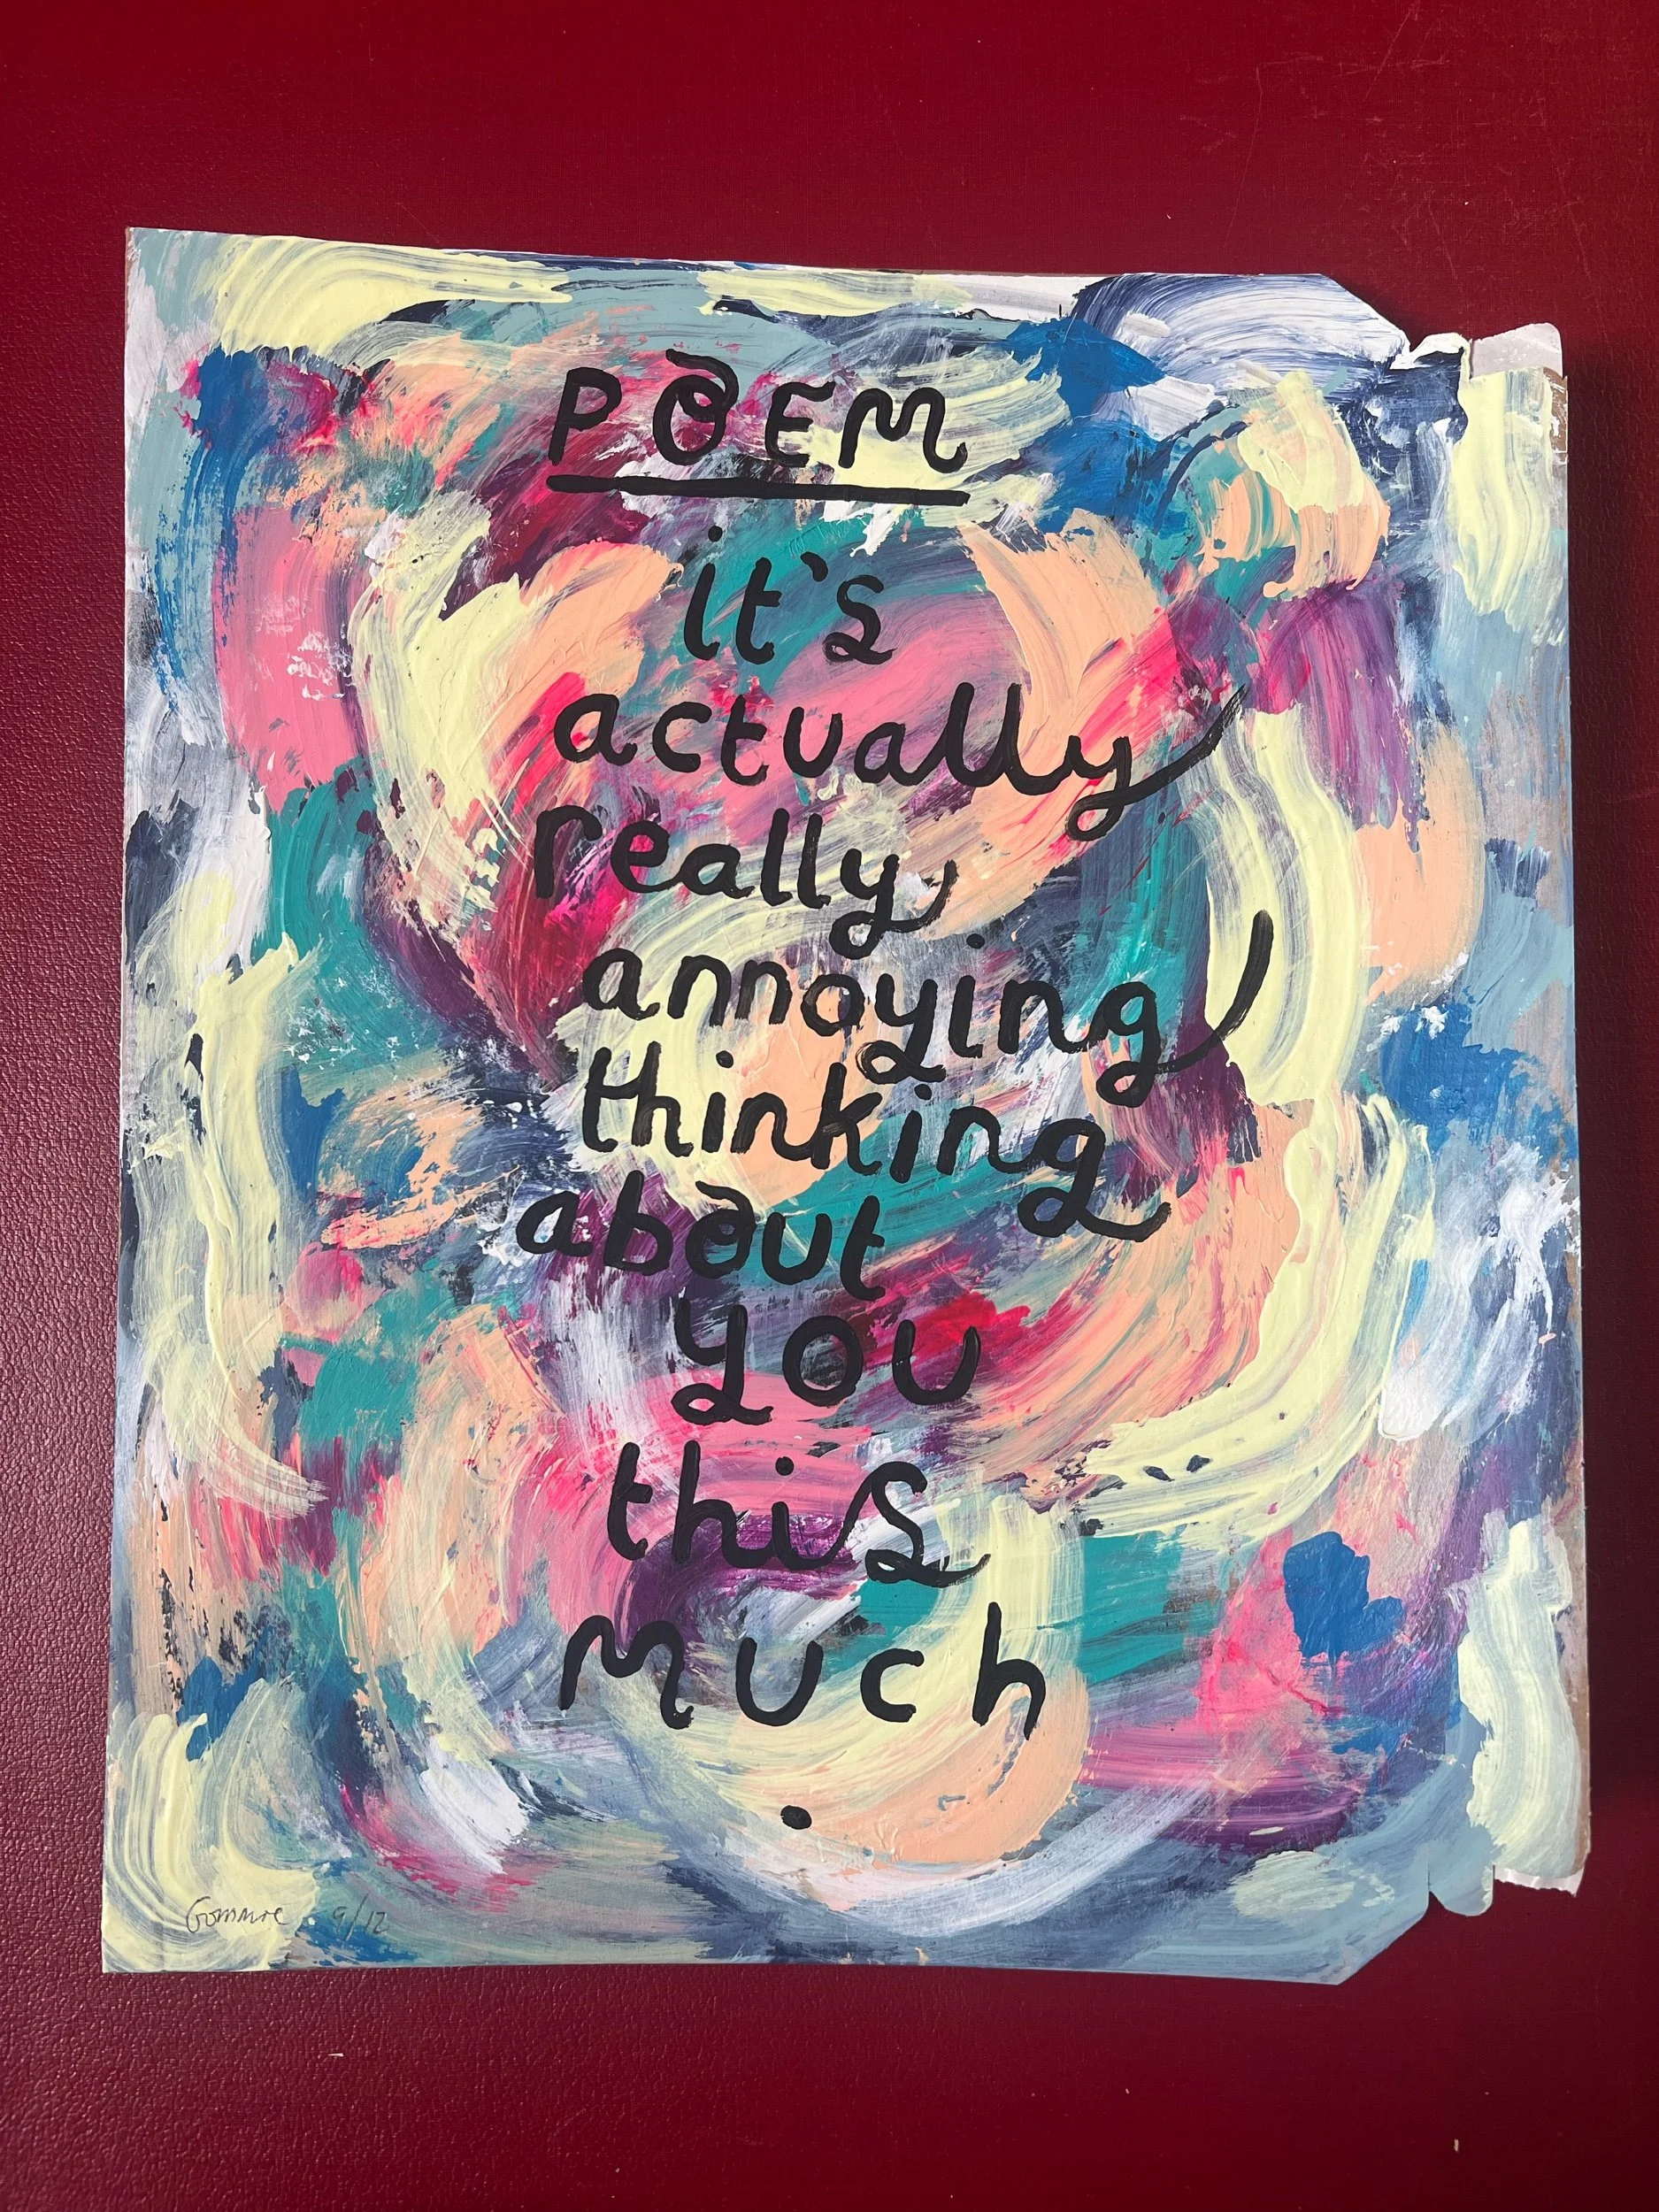 POEM
it's
actually
really
annoying
thinking
about
you
this
much
.
9/12